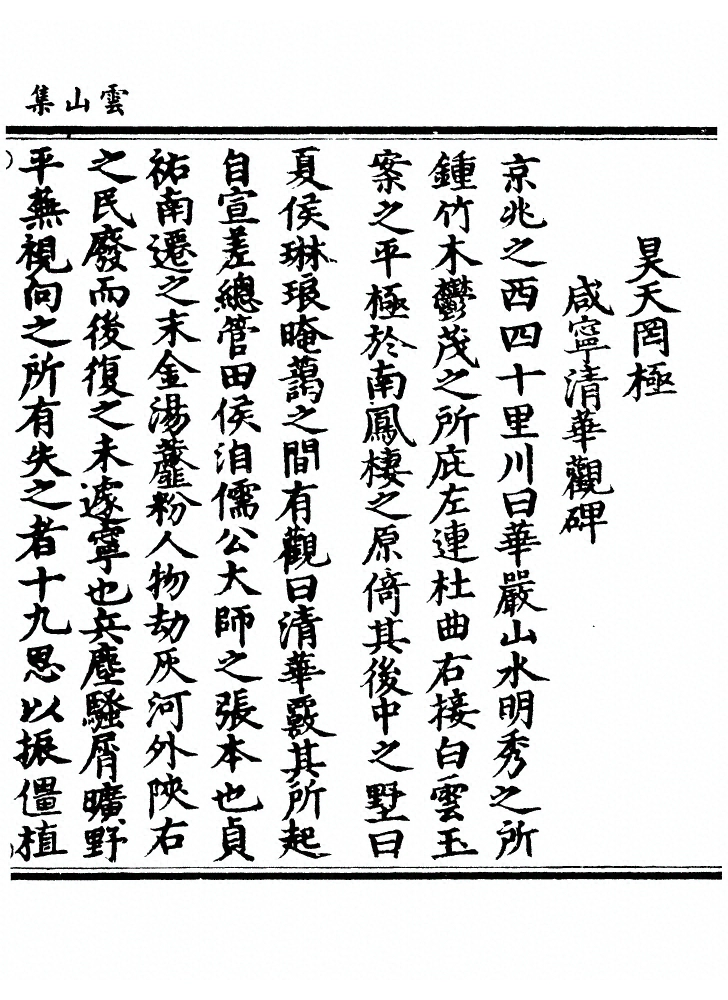 雲山集
昊天罔極
咸寧清華觀碑
京兆之西四十里川曰華嚴山水明秀之所
鍾竹木鬱茂之所庇左連杜曲右接白雲玉
案之平極於南鳳棲之原倚其後中之墅曰
夏侯琳琅晻藹之間有觀曰清華覈其所起
自宣差總管田侯洎儒公大師之張本也貞
祐南遷之末金湯虀粉人物劫灰河外陝右
之民廢而後復之未遽寧也兵塵騷屑曠野
平蕪視向之所有失之者十九思以振僵植